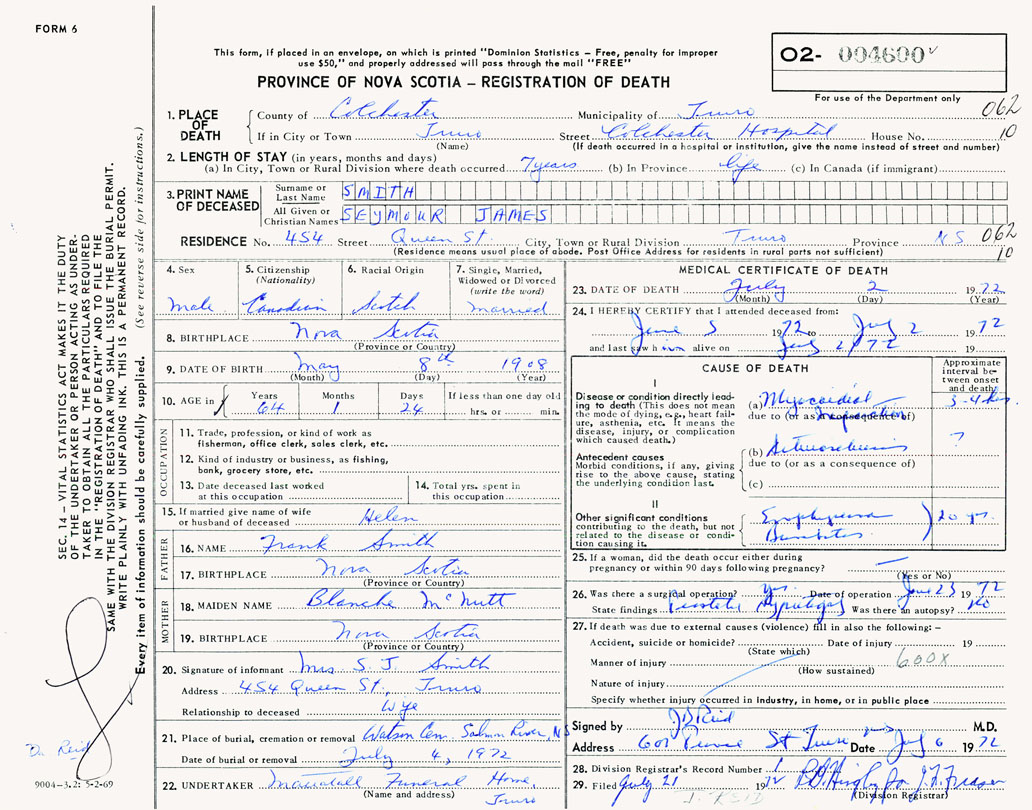 FORM 6
This form, if placed in an envelope, on which is printed "Dominion Statistics – Free, penalty for improper
use $50," and properly addressed will pass through the mail "FREE"
PROVINCE OF NOVA SCOTIA – REGISTRATION OF DEATH
O2- 004600
For use of the Department only
062
10
1. PLACE OF DEATH
County of Colchester Municipality of Truro
If in City or Town Truro Street Colchester Hospital House No.
(Name) (If death occurred in a hospital or institution, give the name instead of street and number)
2. LENGTH OF STAY (in years, months and days)
(a) In City, Town or Rural Division where death occurred 7 years (b) In Province life (c) In Canada (if immigrant)
3. PRINT NAME OF DECEASED
Surname or Last Name SMITH
All Given or Christian Names SEYMOUR JAMES
RESIDENCE No. 454 Street Queen St. City, Town or Rural Division Truro Province N S 062
(Residence means usual place of abode. Post Office Address for residents in rural parts not sufficient) 10
4. Sex
Male
5. Citizenship
(Nationality)
Canadian
6. Racial Origin
Scotch
7. Single, Married,
Widowed or Divorced
(write the word)
Married
8. BIRTHPLACE Nova Scotia
(Province or Country)
9. DATE OF BIRTH May 8th 1908
(Month) (Day) (Year)
10. AGE in
Years Months Days If less than one day old
64 1 24 hrs. or min.
OCCUPATION
11. Trade, profession, or kind of work as
fisherman, office clerk, sales clerk, etc.
12. Kind of industry or business, as fishing,
bank, grocery store, etc.
13. Date deceased last worked
at this occupation
14. Total yrs. spent in
this occupation
15. If married give name of wife
or husband of deceased Helen
FATHER
16. NAME Frank Smith
17. BIRTHPLACE Nova Scotia
(Province or Country)
MOTHER
18. MAIDEN NAME Blanche McNutt
19. BIRTHPLACE Nova Scotia
(Province or Country)
20. Signature of informant Mrs. S. J. Smith
Address 454 Queen St, Truro
Relationship to deceased Wife
21. Place of burial, cremation or removal Watson Cem. Salmon River, N S
Date of burial or removal July 4, 1972
22. UNDERTAKER Mattatall Funeral Home,
(Name and address) Truro
MEDICAL CERTIFICATE OF DEATH
23. DATE OF DEATH July 2 1972
(Month) (Day) (Year)
24. I HEREBY CERTIFY that I attended deceased from:
June 5 1972 to July 2 1972
and last saw him alive on July 2/72 19
CAUSE OF DEATH
Approximate
interval be-
tween onset
and death
I
Disease or condition directly lead-
ing to death (This does not mean
the mode of dying, e.g., heart fail-
ure, asthenia, etc. It means the
disease, injury, or complication
which caused death.)
(a) Myocardial
due to (or as a consequence of)
3-4
Antecedent causes
Morbid conditions, if any, giving
rise to the above cause, stating
the underlying condition last.
(b)
due to (or as a consequence of)
(c)
?
II
Other significant conditions
contributing to the death, but not
related to the disease or condi-
tion causing it.
Emphysema
20 yrs.
25. If a woman, did the death occur either during
pregnancy or within 90 days following pregnancy?
(Yes or No)
26. Was there a surgical operation? yes. Date of operation June 23 1972
State findings Was there an autopsy? No
27. If death was due to external causes (violence) fill in also the following: –
Accident, suicide or homicide? Date of injury 19
(State which)
Manner of injury 600X
(How sustained)
Nature of injury
Specify whether injury occurred in industry, in home, or in public place
Signed by J B Reid M.D.
Address 601 Prince St Truro Date July 6 1972
28. Division Registrar's Record Number
29. Filed July 21 1972
(Division Registrar)
J. REID
SEC. 14 – VITAL STATISTICS ACT MAKES IT THE DUTY
OF THE UNDERTAKER OR PERSON ACTING AS UNDER-
TAKER TO OBTAIN ALL THE PARTICULARS REQUIRED
IN THE "REGISTRATION OF DEATH" AND TO FILE THE
SAME WITH THE DIVISION REGISTRAR WHO SHALL ISSUE THE BURIAL PERMIT.
WRITE PLAINLY WITH UNFADING INK. THIS IS A PERMANENT RECORD.
Every item of information should be carefully supplied. (See reverse side for instructions.)
Dr. Reid
9004-3.2: 5-2-69